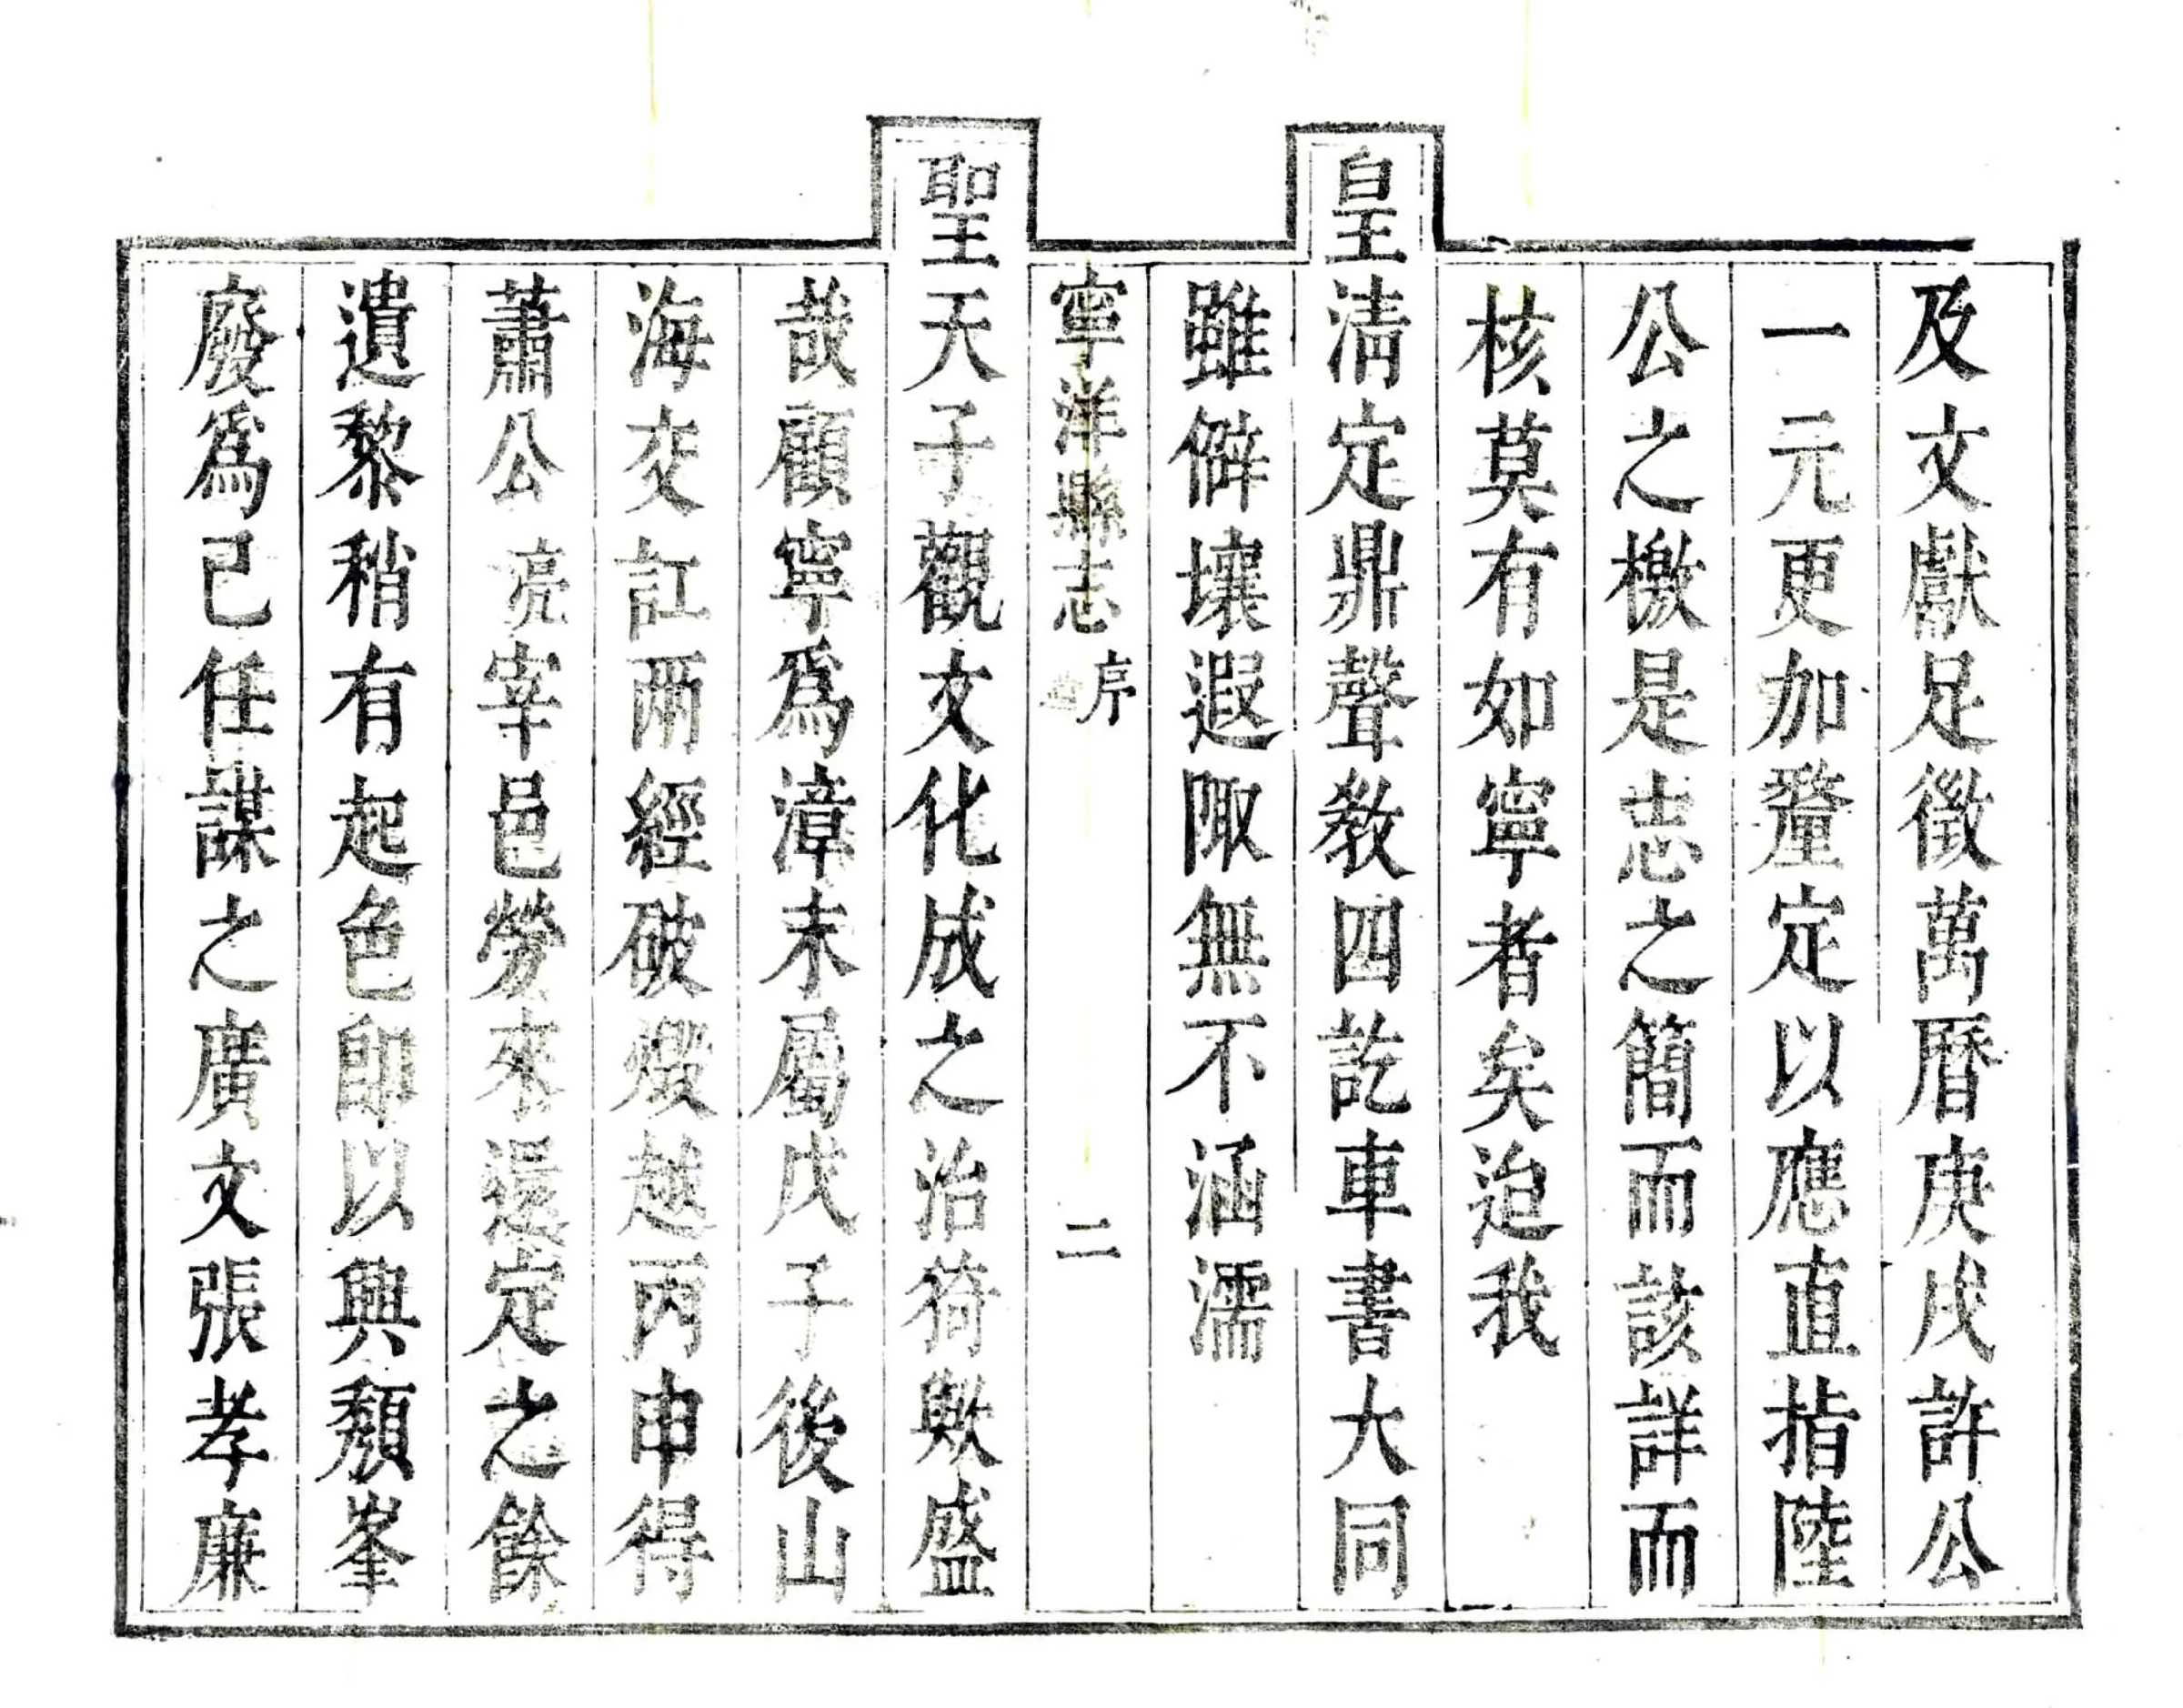 及文獻足徵萬曆庚戌許公
一元更加釐定以應直指陸
公之檄是志之簡而該詳而
核莫有如寧者矣迨我
皇清定鼎聲敎四訖車書大同
雖僻壤遐陬無不涵濡
寧洋縣志 序 二
聖天子觀文化成之治猗歟盛
哉顧寧爲漳末屬戊子後山
海交訌兩經破燬越丙申得
蕭公亮宰邑勞來還定之餘
遺黎稍有起色卽以興頽舉
廢爲己任謀之廣文張孝廉